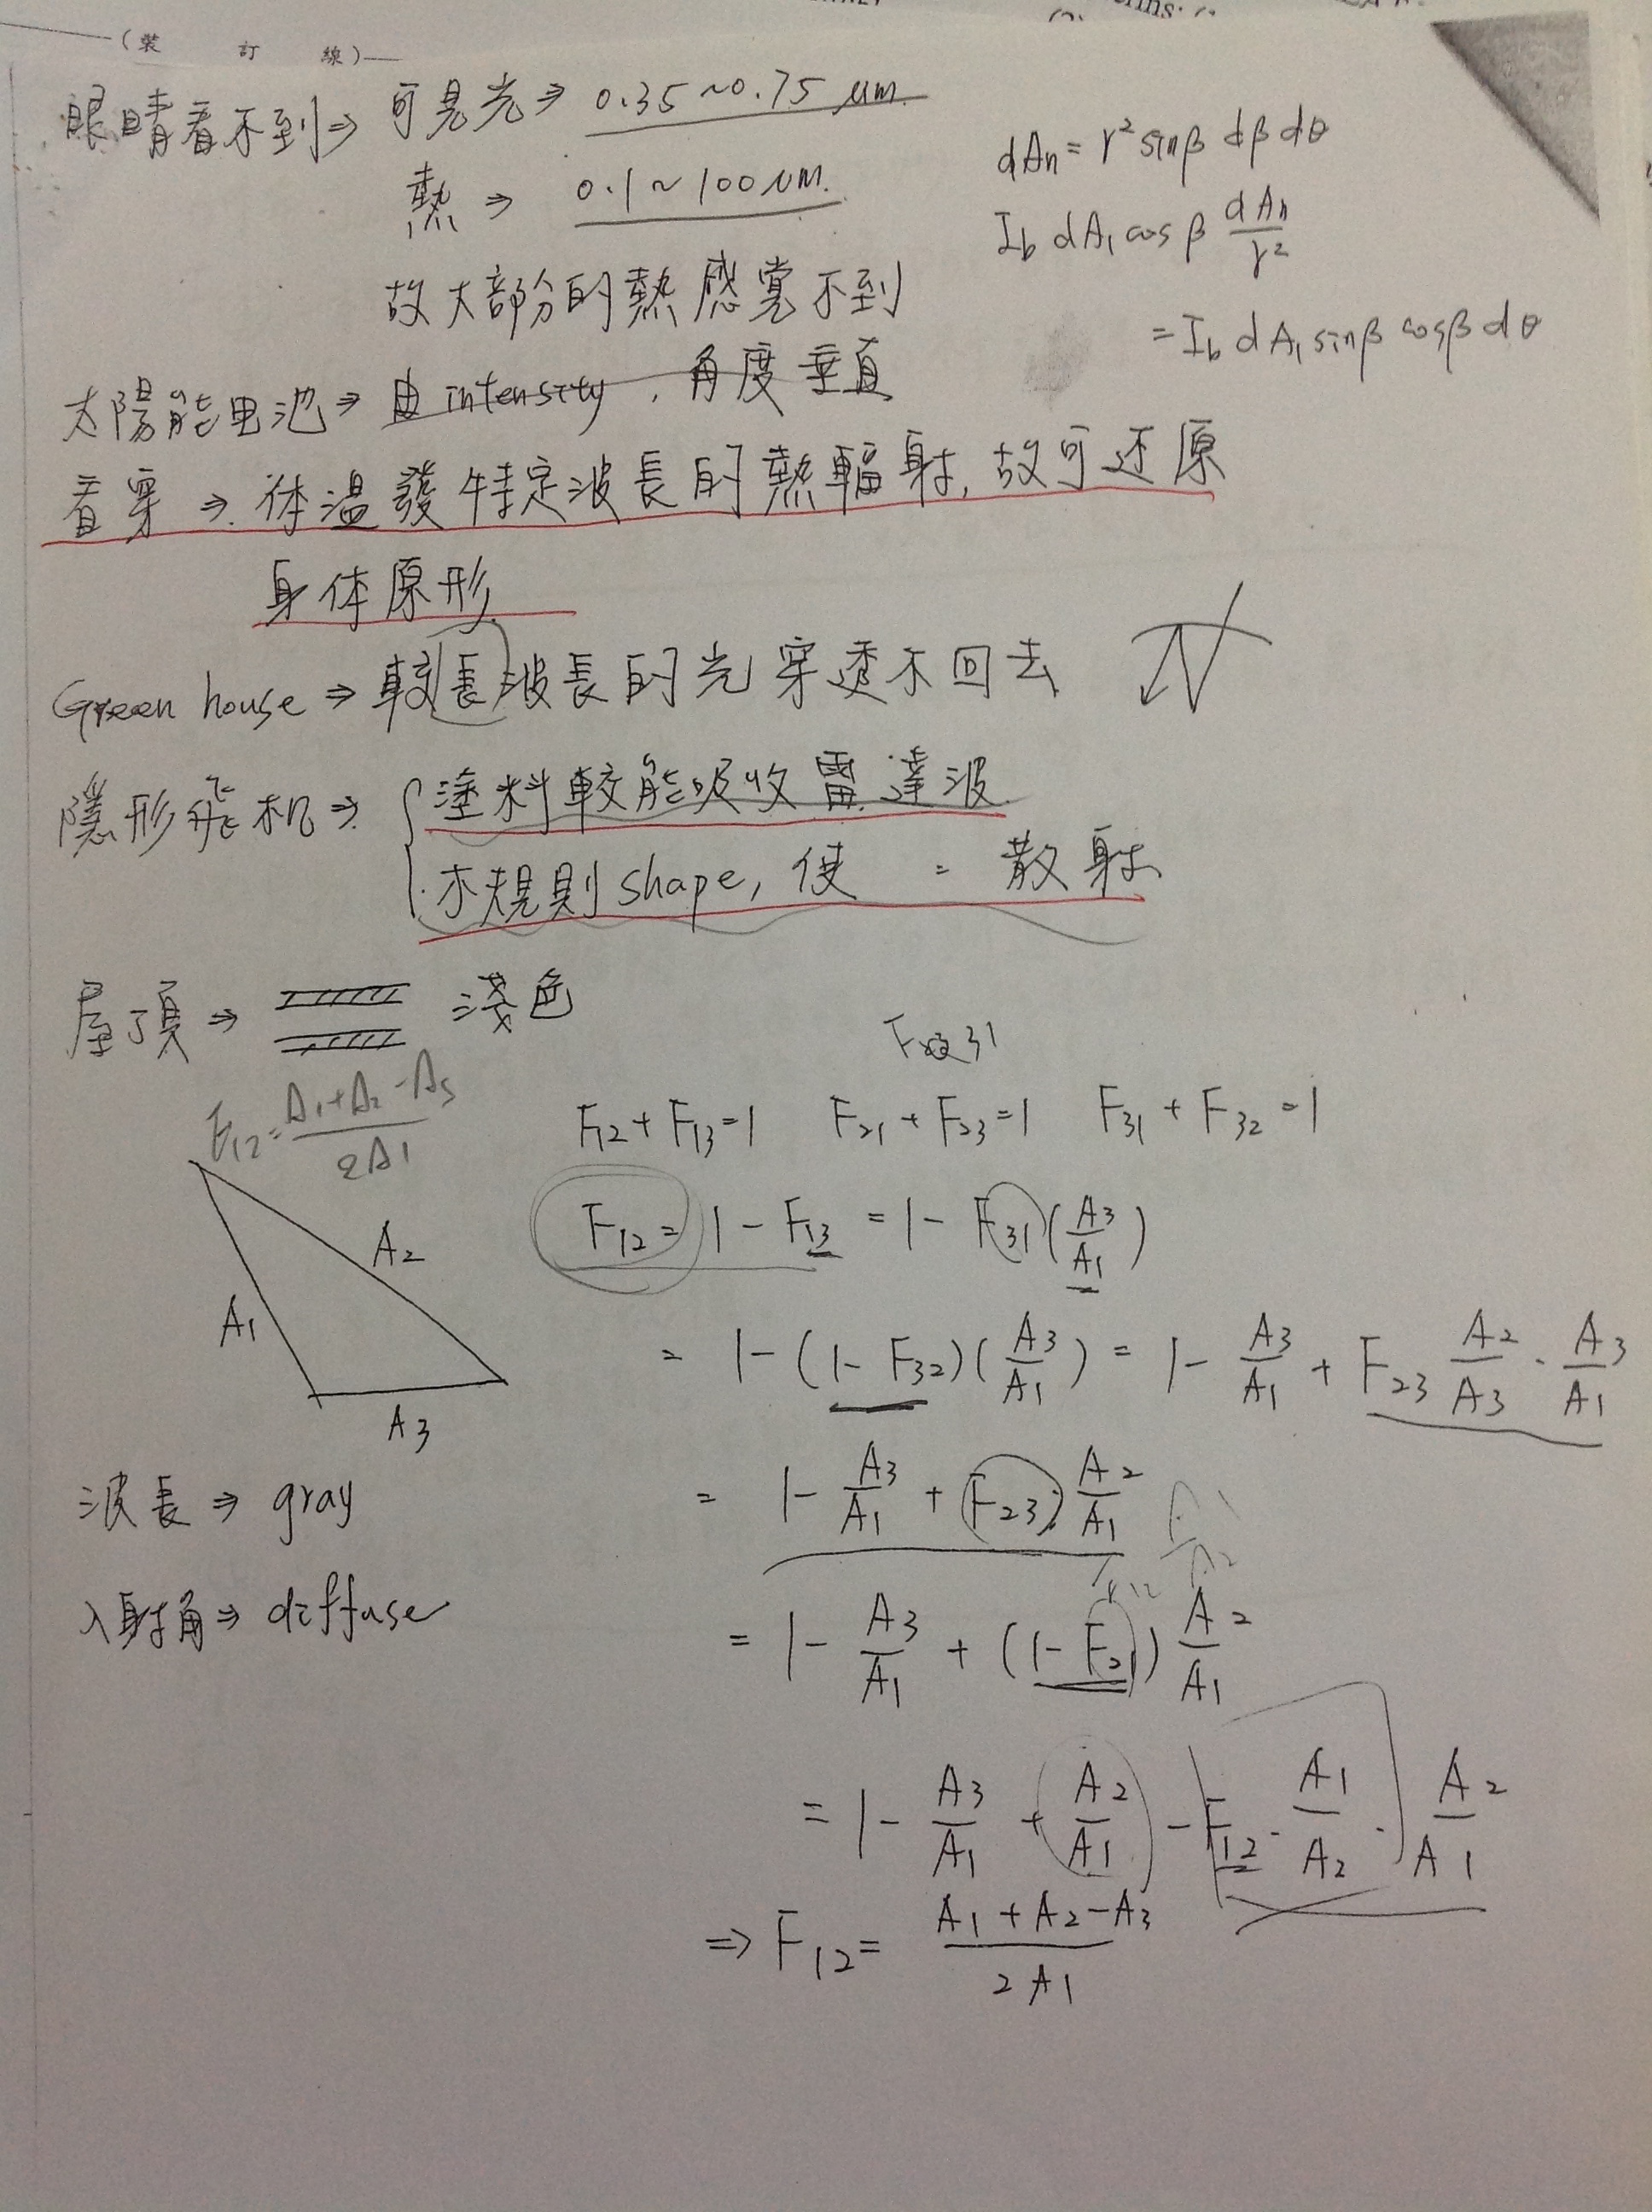 (裝 訂 線)
眼睛看不到⇒ 可見光⇒ 0.35~0.75 μm.
熱 ⇒ 0.1~100 μm.
故大部分的熱感覺不到
dAn = r² sinβ dβ dθ
I_b dA₁ cosβ dAn/r²
= I_b dA₁ sinβ cosβ dθ
太陽能电池⇒ 由 intensity, 角度垂直
看穿 ⇒ 体温發特定波長的熱輻射, 故可还原
身体原形.
Green house ⇒ 較長波長的光穿透不回去
隱形飛机⇒ { 塗料較能吸收雷達波
不規則 shape, 使 = 散射
屋頂 ⇒ 淺色
F₁₂ = (A₁+A₂-A₃)/2A₁
F₁₂ + F₁₃ = 1 F₂₁ + F₂₃ = 1 F₃₁ + F₃₂ = 1
F₁₂ = 1 - F₁₃ = 1 - F₃₁ (A₃/A₁)
A₁ A₂ A₃
= 1 - (1 - F₃₂)(A₃/A₁) = 1 - A₃/A₁ + F₂₃ A₂/A₃ · A₃/A₁
波長 ⇒ gray
= 1 - A₃/A₁ + F₂₃ A₂/A₁
入射角 ⇒ diffuse
= 1 - A₃/A₁ + (1 - F₂₁) A₂/A₁
= 1 - A₃/A₁ + A₂/A₁ - F₁₂ · A₁/A₂ · A₂/A₁
⇒ F₁₂ = (A₁ + A₂ - A₃)/2A₁